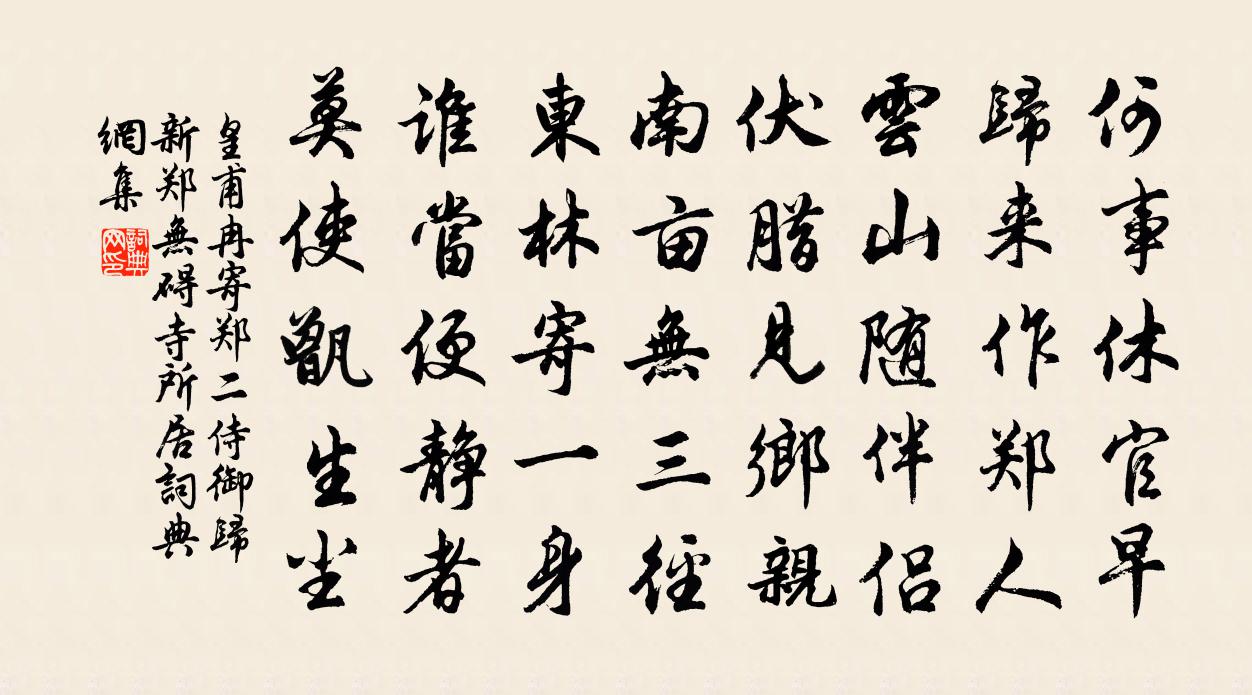 何事休官早
歸来作郑人
雲山随伴侣
伏腊見鄉親
南亩無三徑
東林寄一身
誰當便静者
莫使甑生尘
皇甫冉寄郑二侍御歸
新郑無碍寺所居詞典
網集
詞典
网印